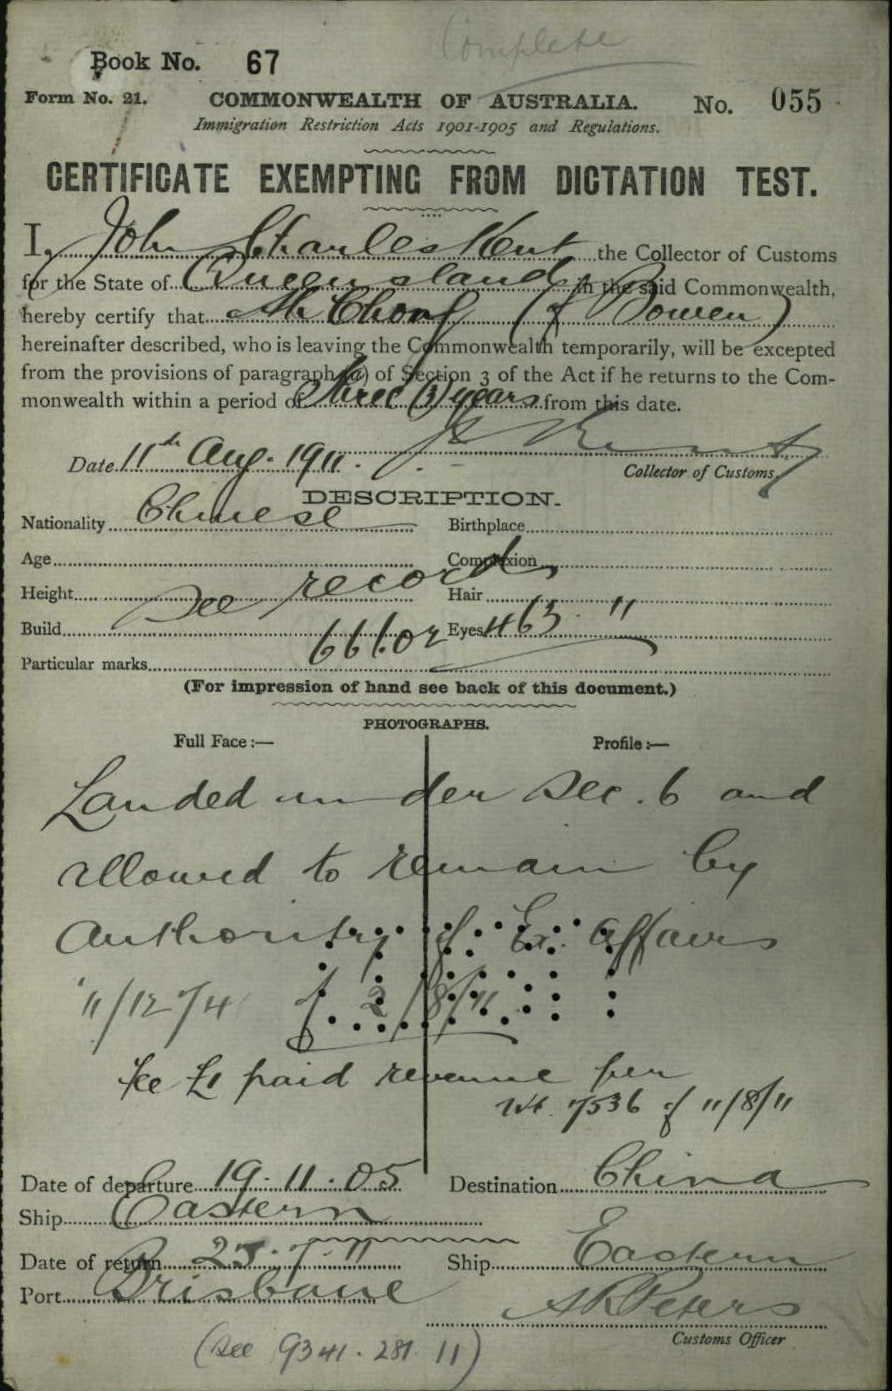 Complete
Book No. 67
Form No. 21. COMMONWEALTH OF AUSTRALIA. No. 055
Immigration Restriction Acts 1901-1905 and Regulations.
CERTIFICATE EXEMPTING FROM DICTATION TEST.
I, John Charles Kent the Collector of Customs
for the State of Queensland, in the said Commonwealth,
hereby certify that Ah Chong (of Bowen)
hereinafter described, who is leaving the Commonwealth temporarily, will be excepted
from the provisions of paragraph (a) of Section 3 of the Act if he returns to the Com-
monwealth within a period of three (3) years from this date.
Date 11th Aug. 1911.
Collector of Customs.
DESCRIPTION.
Nationality Chinese Birthplace
Age Complexion
Height See records Hair
Build Eyes
Particular marks
(For impression of hand see back of this document.)
PHOTOGRAPHS.
Full Face :— Profile :—
Landed under Sec. 6 and
allowed to remain by
Authority of Ex. Affairs
11/1274 of 2/8/11
Fee £1 paid revenue per
7536 of 11/8/11
Date of departure 19.11.05 Destination China
Ship Eastern
Date of return 25.7.11 Ship Eastern
Port Brisbane
Peters
Customs Officer
(See 9341.281.11)